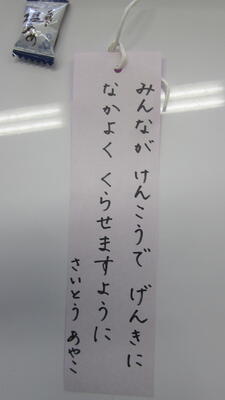 みんなが けんこうで げんきに
なかよく くらせますように
さいとう あやこ